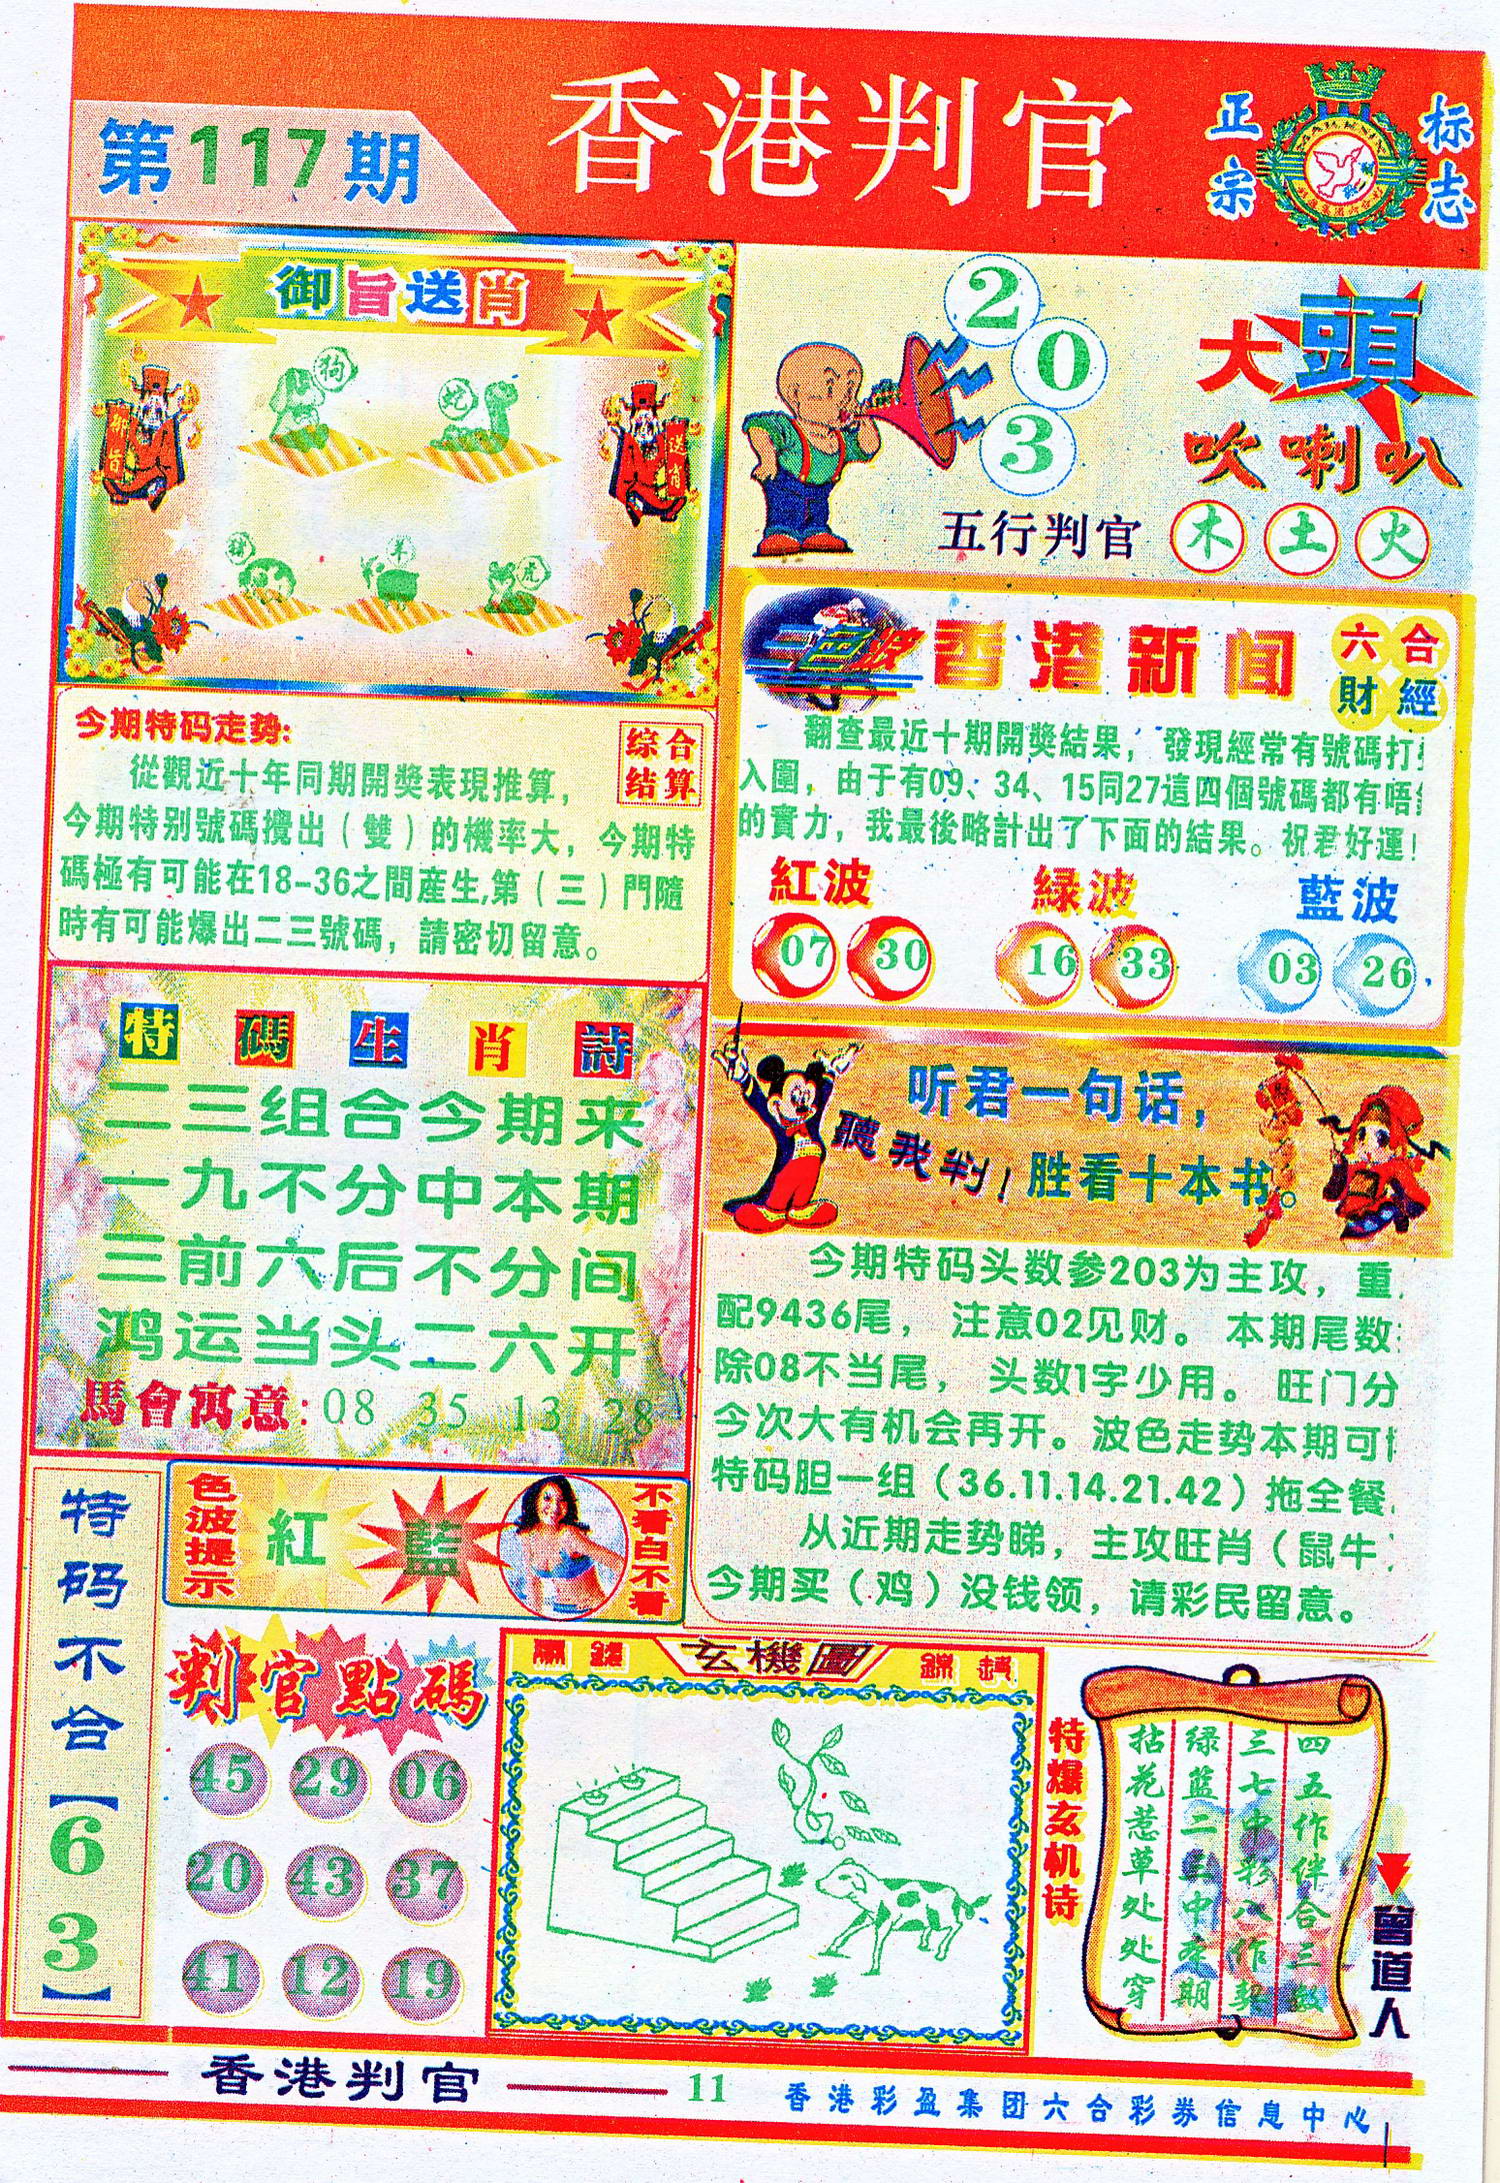 第117期
香港判官
正宗
标志
御旨送肖
狗
蛇
御旨
送肖
猪
羊
虎
2
0
3
大頭
吹喇叭
五行判官
木 土 火
今期特码走势:
综合
结算
從觀近十年同期開獎表現推算，
今期特别號碼攪出（雙）的機率大，今期特
碼極有可能在18-36之間産生,第（三）門隨
時有可能爆出二三號碼，請密切留意。
香港新闻
六合
財經
翻查最近十期開獎結果，發現經常有號碼打
入圍，由于有09、34、15同27這四個號碼都有唔
的實力，我最後略計出了下面的結果。祝君好運!
紅波
緑波
藍波
07 30
16 33
03 26
特碼生肖詩
二三组合今期来
一九不分中本期
三前六后不分间
鸿运当头二六开
馬會寓意:08 35 13 28
听君一句话，
聽我判!
胜看十本书。
今期特码头数参203为主攻，重
配9436尾，注意02见财。本期尾数
除08不当尾，头数1字少用。旺门分
今次大有机会再开。波色走势本期可
特码胆一组（36.11.14.21.42）拖全餐
从近期走势睇，主攻旺肖（鼠牛
今期买（鸡）没钱领，请彩民留意。
特码不合【63】
色波提示
紅
藍
不看白不看
判官點碼
45 29 06
20 43 37
41 12 19
玄機圖
特爆玄机诗
四五作伴合三数
三七中彩八作契
绿蓝二三中本期
拈花惹草处处穿
曾道人
香港判官
11
香港彩盈集团六合彩券信息中心